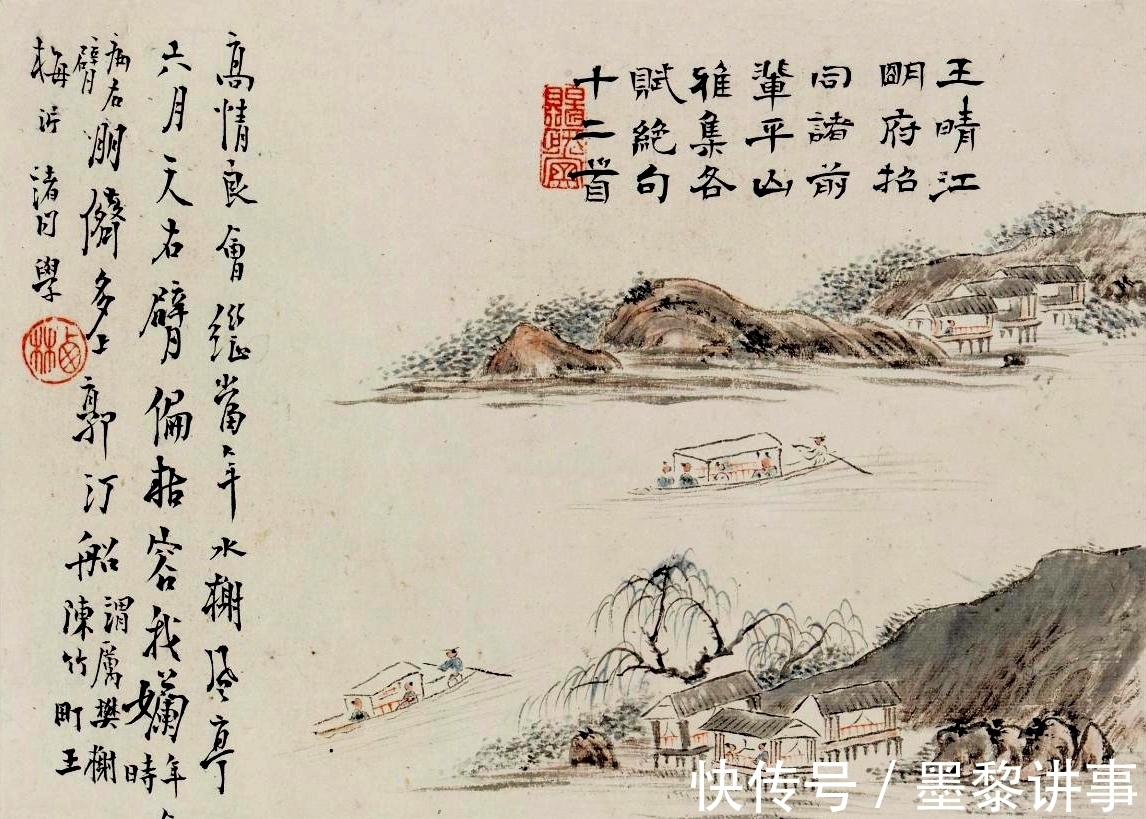 王晴江
明府招
同諸前
輩平山
雅集各
賦絕句
十二首
高情良會繼當年水榭風亭
六月天右臂偏枯容我嬾年時
病右臂朋儕多上郭汀船謂厲樊榭陳竹町王
梅沜諸同學
快传号 / 墨黎讲事